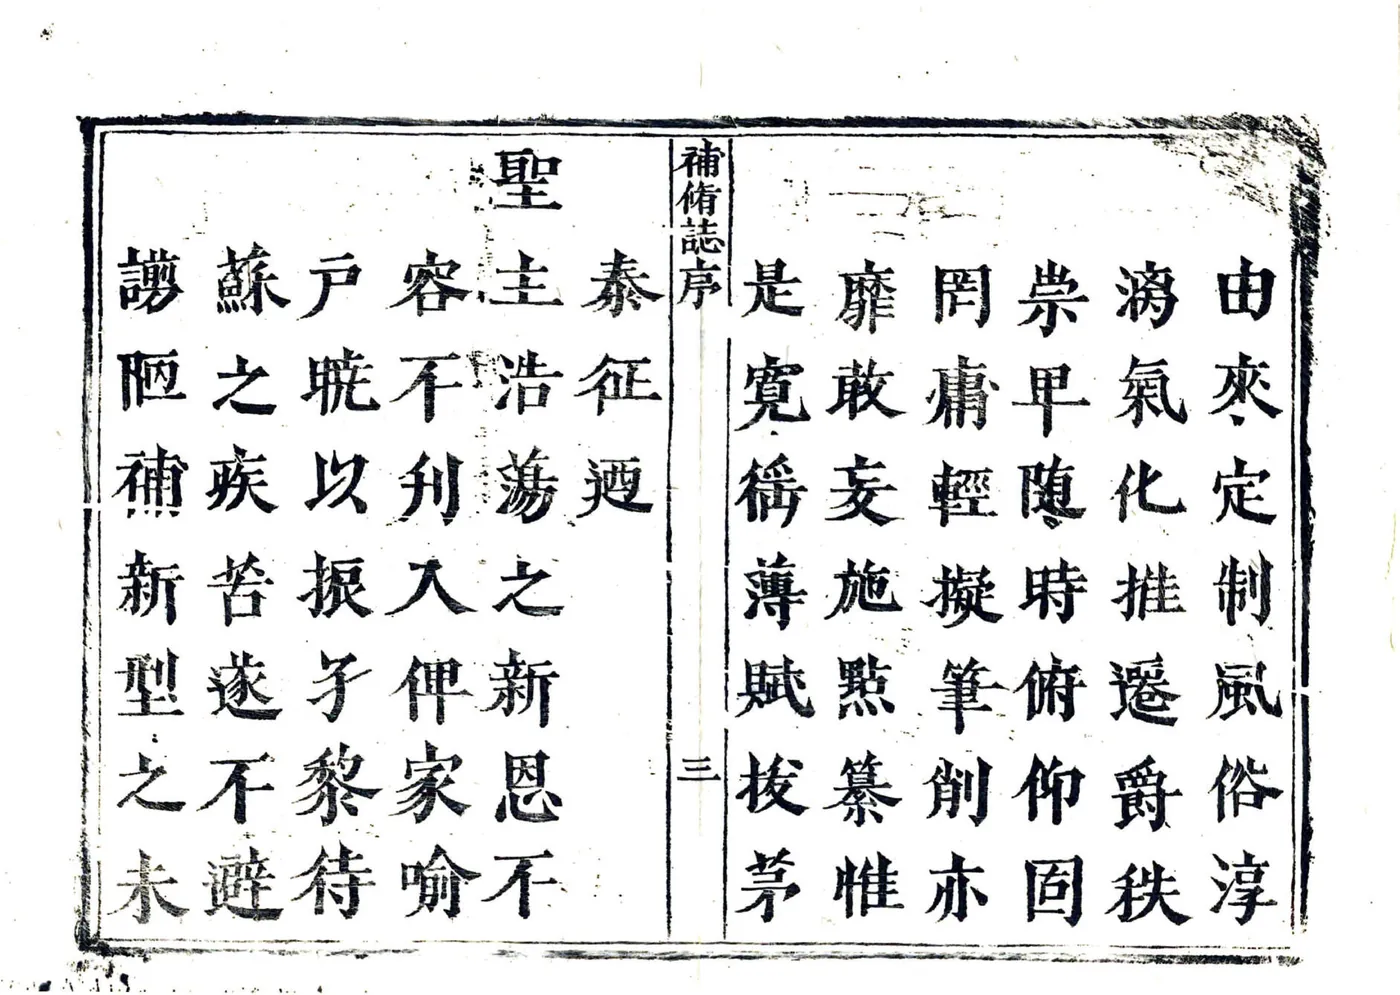 由來定制風俗淳
漓氣化推遷爵秩
崇卑随時俯仰固
罔庸輕擬筆削亦
靡敢妄施點纂惟
是寬徭薄賦拔茅
補脩誌序
三
泰征迺
聖主浩蕩之新恩不
容不刋入俾家喻
戸暁以振孑黎待
蘇之疾苦遂不避
謭陋補新型之未